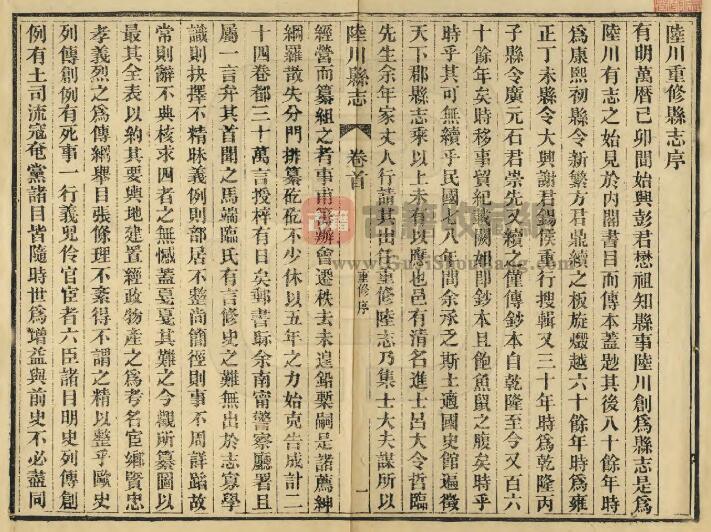 陸川重修縣志序
有明萬曆己卯間始興彭君懋祖知縣事陸川創爲縣志是爲
陸川有志之始見於內閣書目而傳本蓋尟其後八十餘年時
爲康熙初縣令新繁方君鼎續之板旋燬越六十餘年時爲雍
正丁未縣令大興謝君錫侯重行搜輯又三十年時爲乾隆丙
子縣令廣元石君崇先又續之僅傳鈔本自乾隆至今又百六
十餘年矣時移事貿紀載闕如即鈔本且飽魚鼠之腹矣時乎
時乎其可無續乎民國七八年間余承乏斯土適國史館遍徵
天下郡縣志乘以上未有以應也邑有清名進士呂大令哲臨
先生余年家丈人行請其出任重修陸志乃集士大夫謀所以
陸川縣志 卷首 重修序 一
經營而纂組之者事甫籌辦會遷秩去未遑鉛槧嗣是諸薦紳
網羅散失分門排纂矻矻不少休以五年之力始克告成計二
十四卷都三十萬言授梓有日矣郵書賑余南甯警察廳署且
屬一言弁其首聞之馬端臨氏有言修史之難無出於志寡學
識則抉擇不精昧義例則部居不整尚簡徑則事不周詳蹈故
常則辭不典核求四者之無憾蓋戛戛其難之今觀所纂圖以
最其全表以約其要輿地建置經政物產之爲考名宦鄉賢忠
孝義烈之爲傳綱舉目張條理不紊得不謂之精以整乎歐史
列傳創例有死事一行義兒伶官宦者六臣諸目明史列傳創
例有土司流寇奄黨諸目皆隨時世爲增益與前史不必盡同
古籍收藏網
www.GuJiShouCang.com